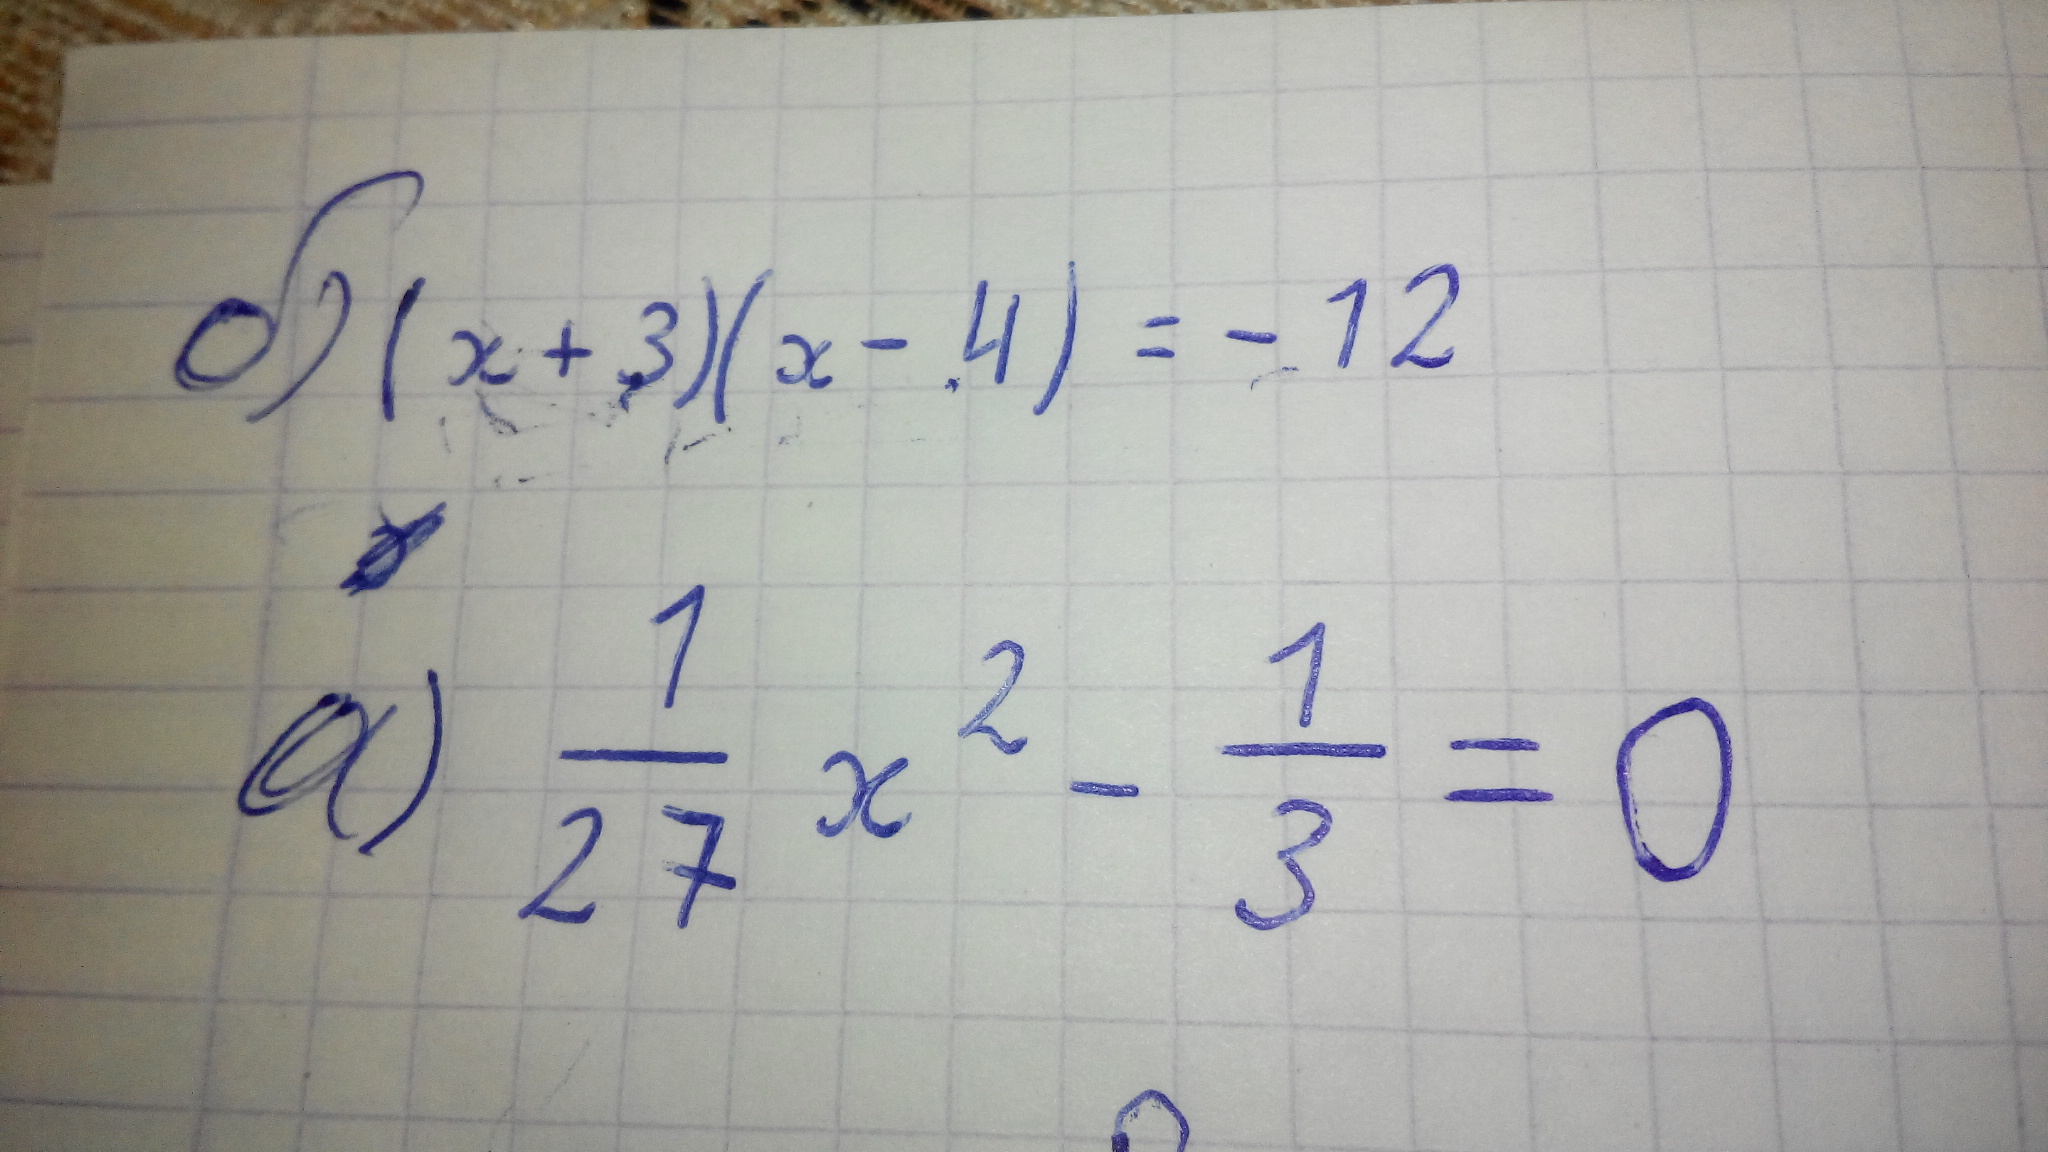 б) (x + 3)(x - 4) = - 12
а) \frac{1}{27} x^2 - \frac{1}{3} = 0